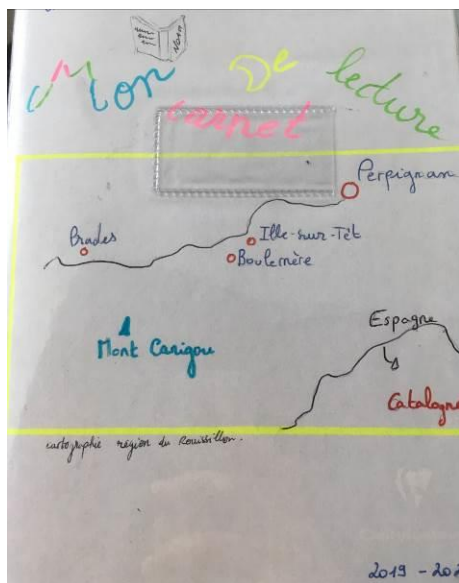 Mon
Carnet
De
lecture
Perpignan
Ille-sur-Têt
Prades
Boulernère
Mont Canigou
Espagne
Catalogne
cartographie région du Rouissillon.
2019 - 202